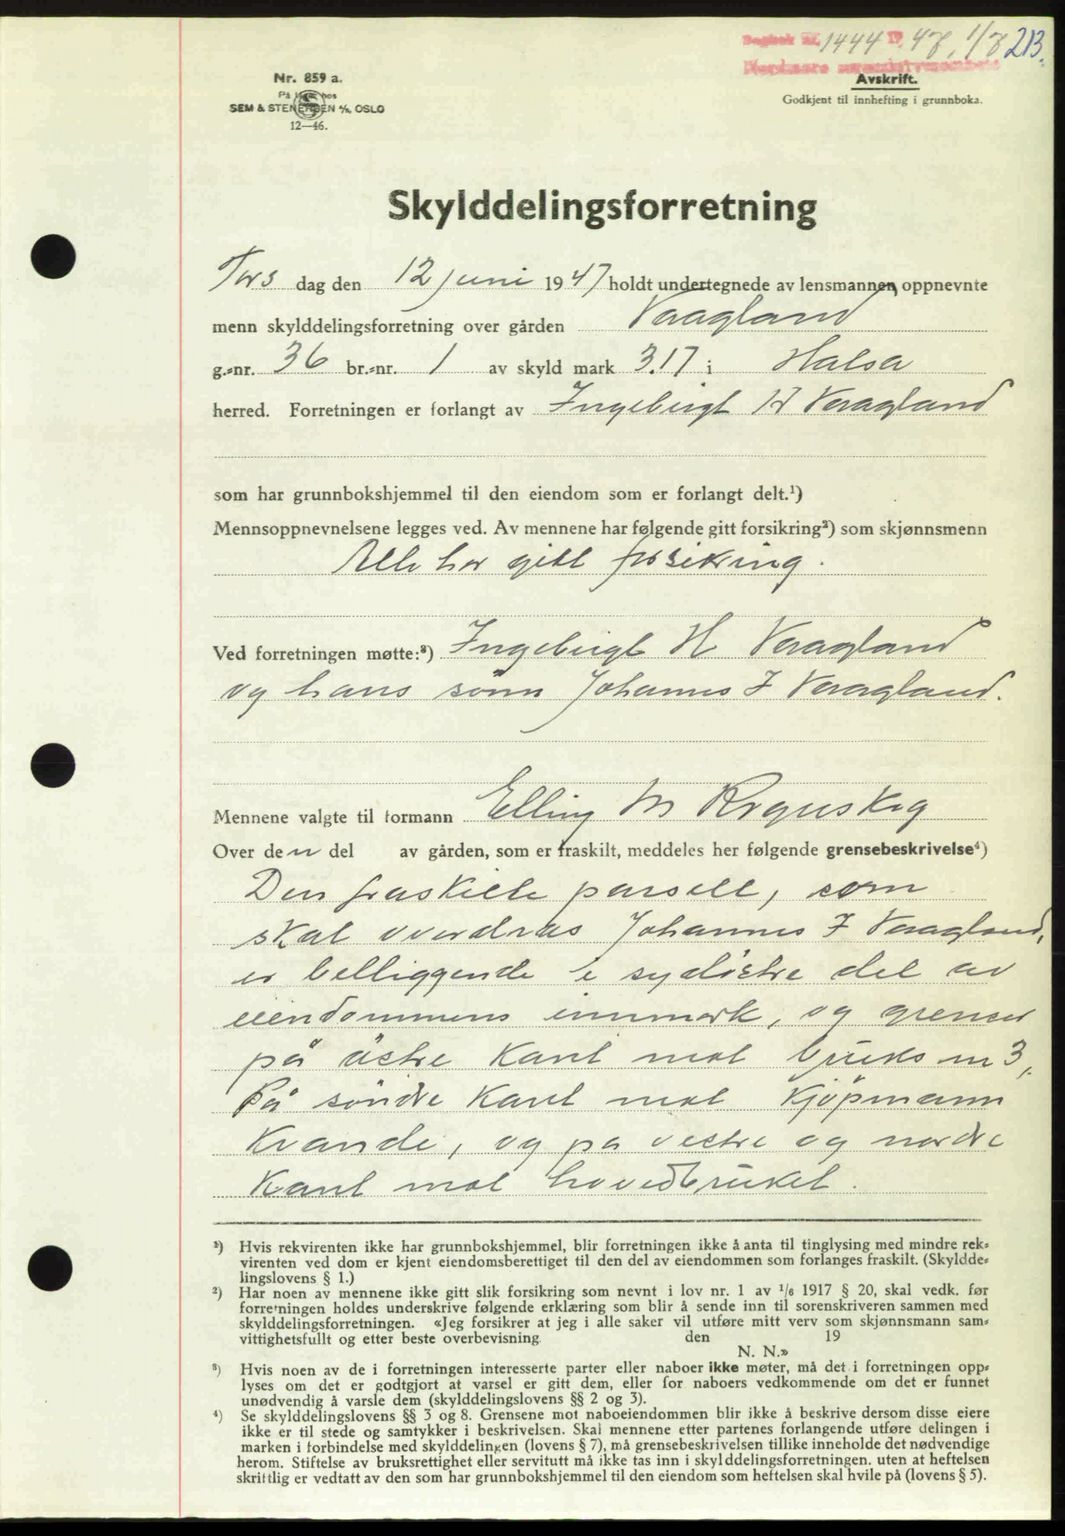 Dagbok nr. 1444 19 47, 1/7 213.
Nordmøre sorenskriverembete
Nr. 859 a.
På lager hos
SEM & STENERSEN A/S, OSLO
12—46.
Avskrift.
Godkjent til innhefting i grunnboka.
Skylddelingsforretning
Tors dag den 12 juni 1947 holdt undertegnede av lensmannen oppnevnte
menn skylddelingsforretning over gården Vaagland
g.-nr. 36 br.-nr. 1 av skyld mark 3.17 i Halsa
herred. Forretningen er forlangt av Ingebrigt H Vaagland
som har grunnbokshjemmel til den eiendom som er forlangt delt.¹)
Mennsoppnevnelsene legges ved. Av mennene har følgende gitt forsikring²) som skjønnsmenn
Alle har gitt forsikring.
Ved forretningen møtte:³) Ingebrigt H Vaagland
og hans sønn Johannes I Vaagland.
Mennene valgte til formann Elling M
Over den del av gården, som er fraskilt, meddeles her følgende grensebeskrivelse⁴)
Den fraskilte parsell, som
skal overdras Johannes I Vaagland,
er belliggende i sydöstre del av
eiendommens innmark, og grenser
på östre kant mot bruks nr 3,
På söndre kant mot kjöpmann
Kvande, og på vestre og nordre
kant mot hovedbruket.
¹) Hvis rekvirenten ikke har grunnbokshjemmel, blir forretningen ikke å anta til tinglysing med mindre rek-
virenten ved dom er kjent eiendomsberettiget til den del av eiendommen som forlanges fraskilt. (Skyldde-
lingslovens § 1.)
²) Har noen av mennene ikke gitt slik forsikring som nevnt i lov nr. 1 av 1/6 1917 § 20, skal vedk. før
forretningen holdes underskrive følgende erklæring som blir å sende inn til sorenskriveren sammen med
skylddelingsforretningen. «Jeg forsikrer at jeg i alle saker vil utføre mitt verv som skjønnsmann sam-
vittighetsfullt og etter beste overbevisning den 19
N. N.»
³) Hvis noen av de i forretningen interesserte parter eller naboer ikke møter, må det i forretningen opp-
lyses om det er godtgjort at varsel er gitt dem, eller for naboers vedkommende om det er funnet
unødvendig å varsle dem (skylddelingslovens §§ 2 og 3).
⁴) Se skylddelingslovens §§ 3 og 8. Grensene mot naboeiendommen blir ikke å beskrive dersom disse eiere
ikke er til stede og samtykker i beskrivelsen. Skal mennene etter partenes forlangende utføre delingen i
marken i forbindelse med skylddelingen (lovens § 7), må grensebeskrivelsen tillike inneholde det nødvendige
herom. Stiftelse av bruksrettighet eller servitutt må ikke tas inn i skylddelingsforretningen. uten at heftelsen
skriftlig er vedtatt av den som har grunnbokshjemmel til den eiendom som heftelsen skal hvile på (lovens § 5).